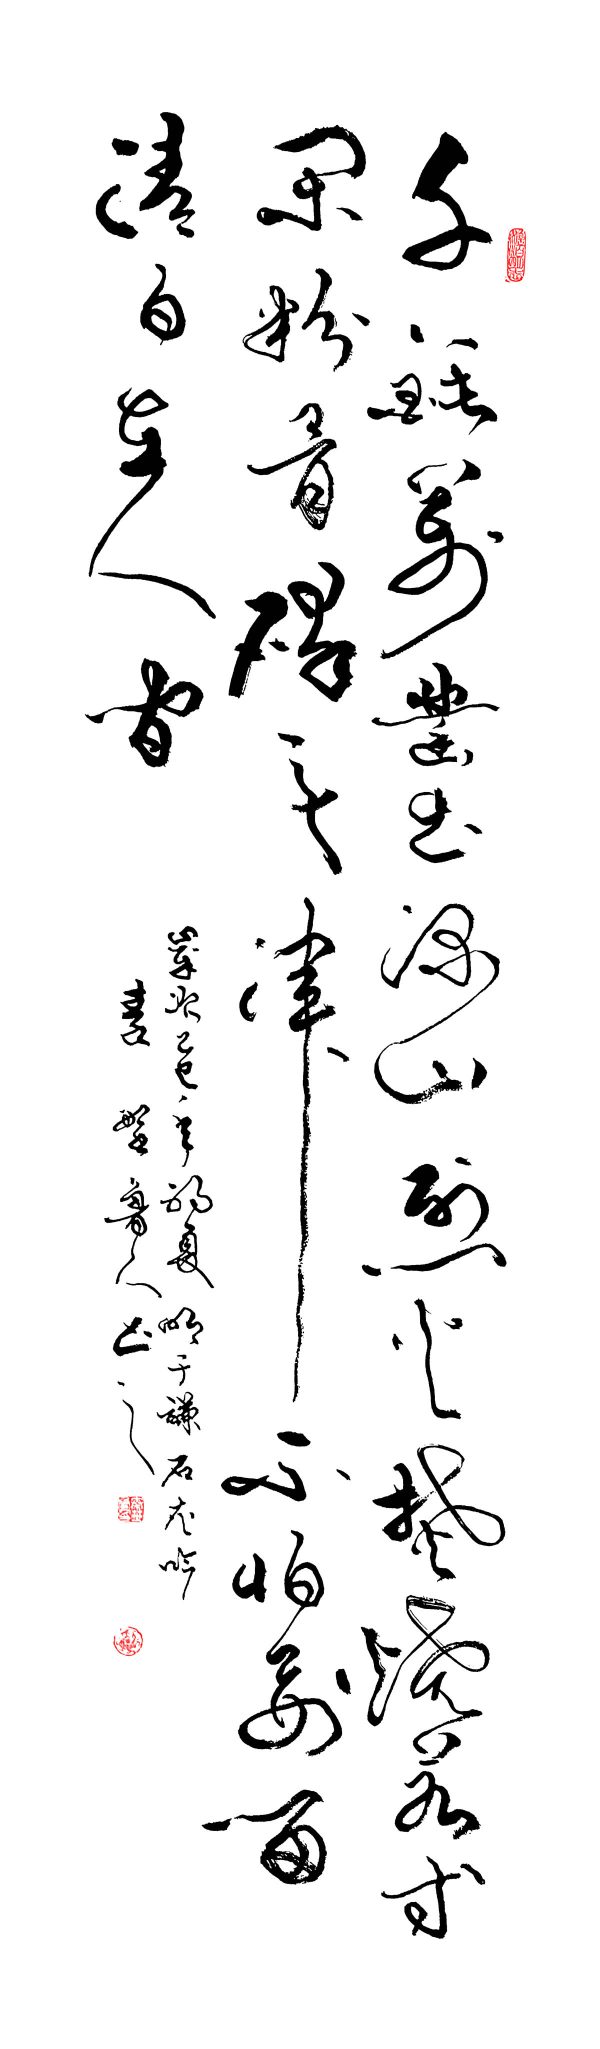 千錘萬鑿出深山烈火焚燒若等
閑粉骨碎身渾不怕要留
清白在人間
歲次乙巳年初夏明于謙石灰吟
魯人书之